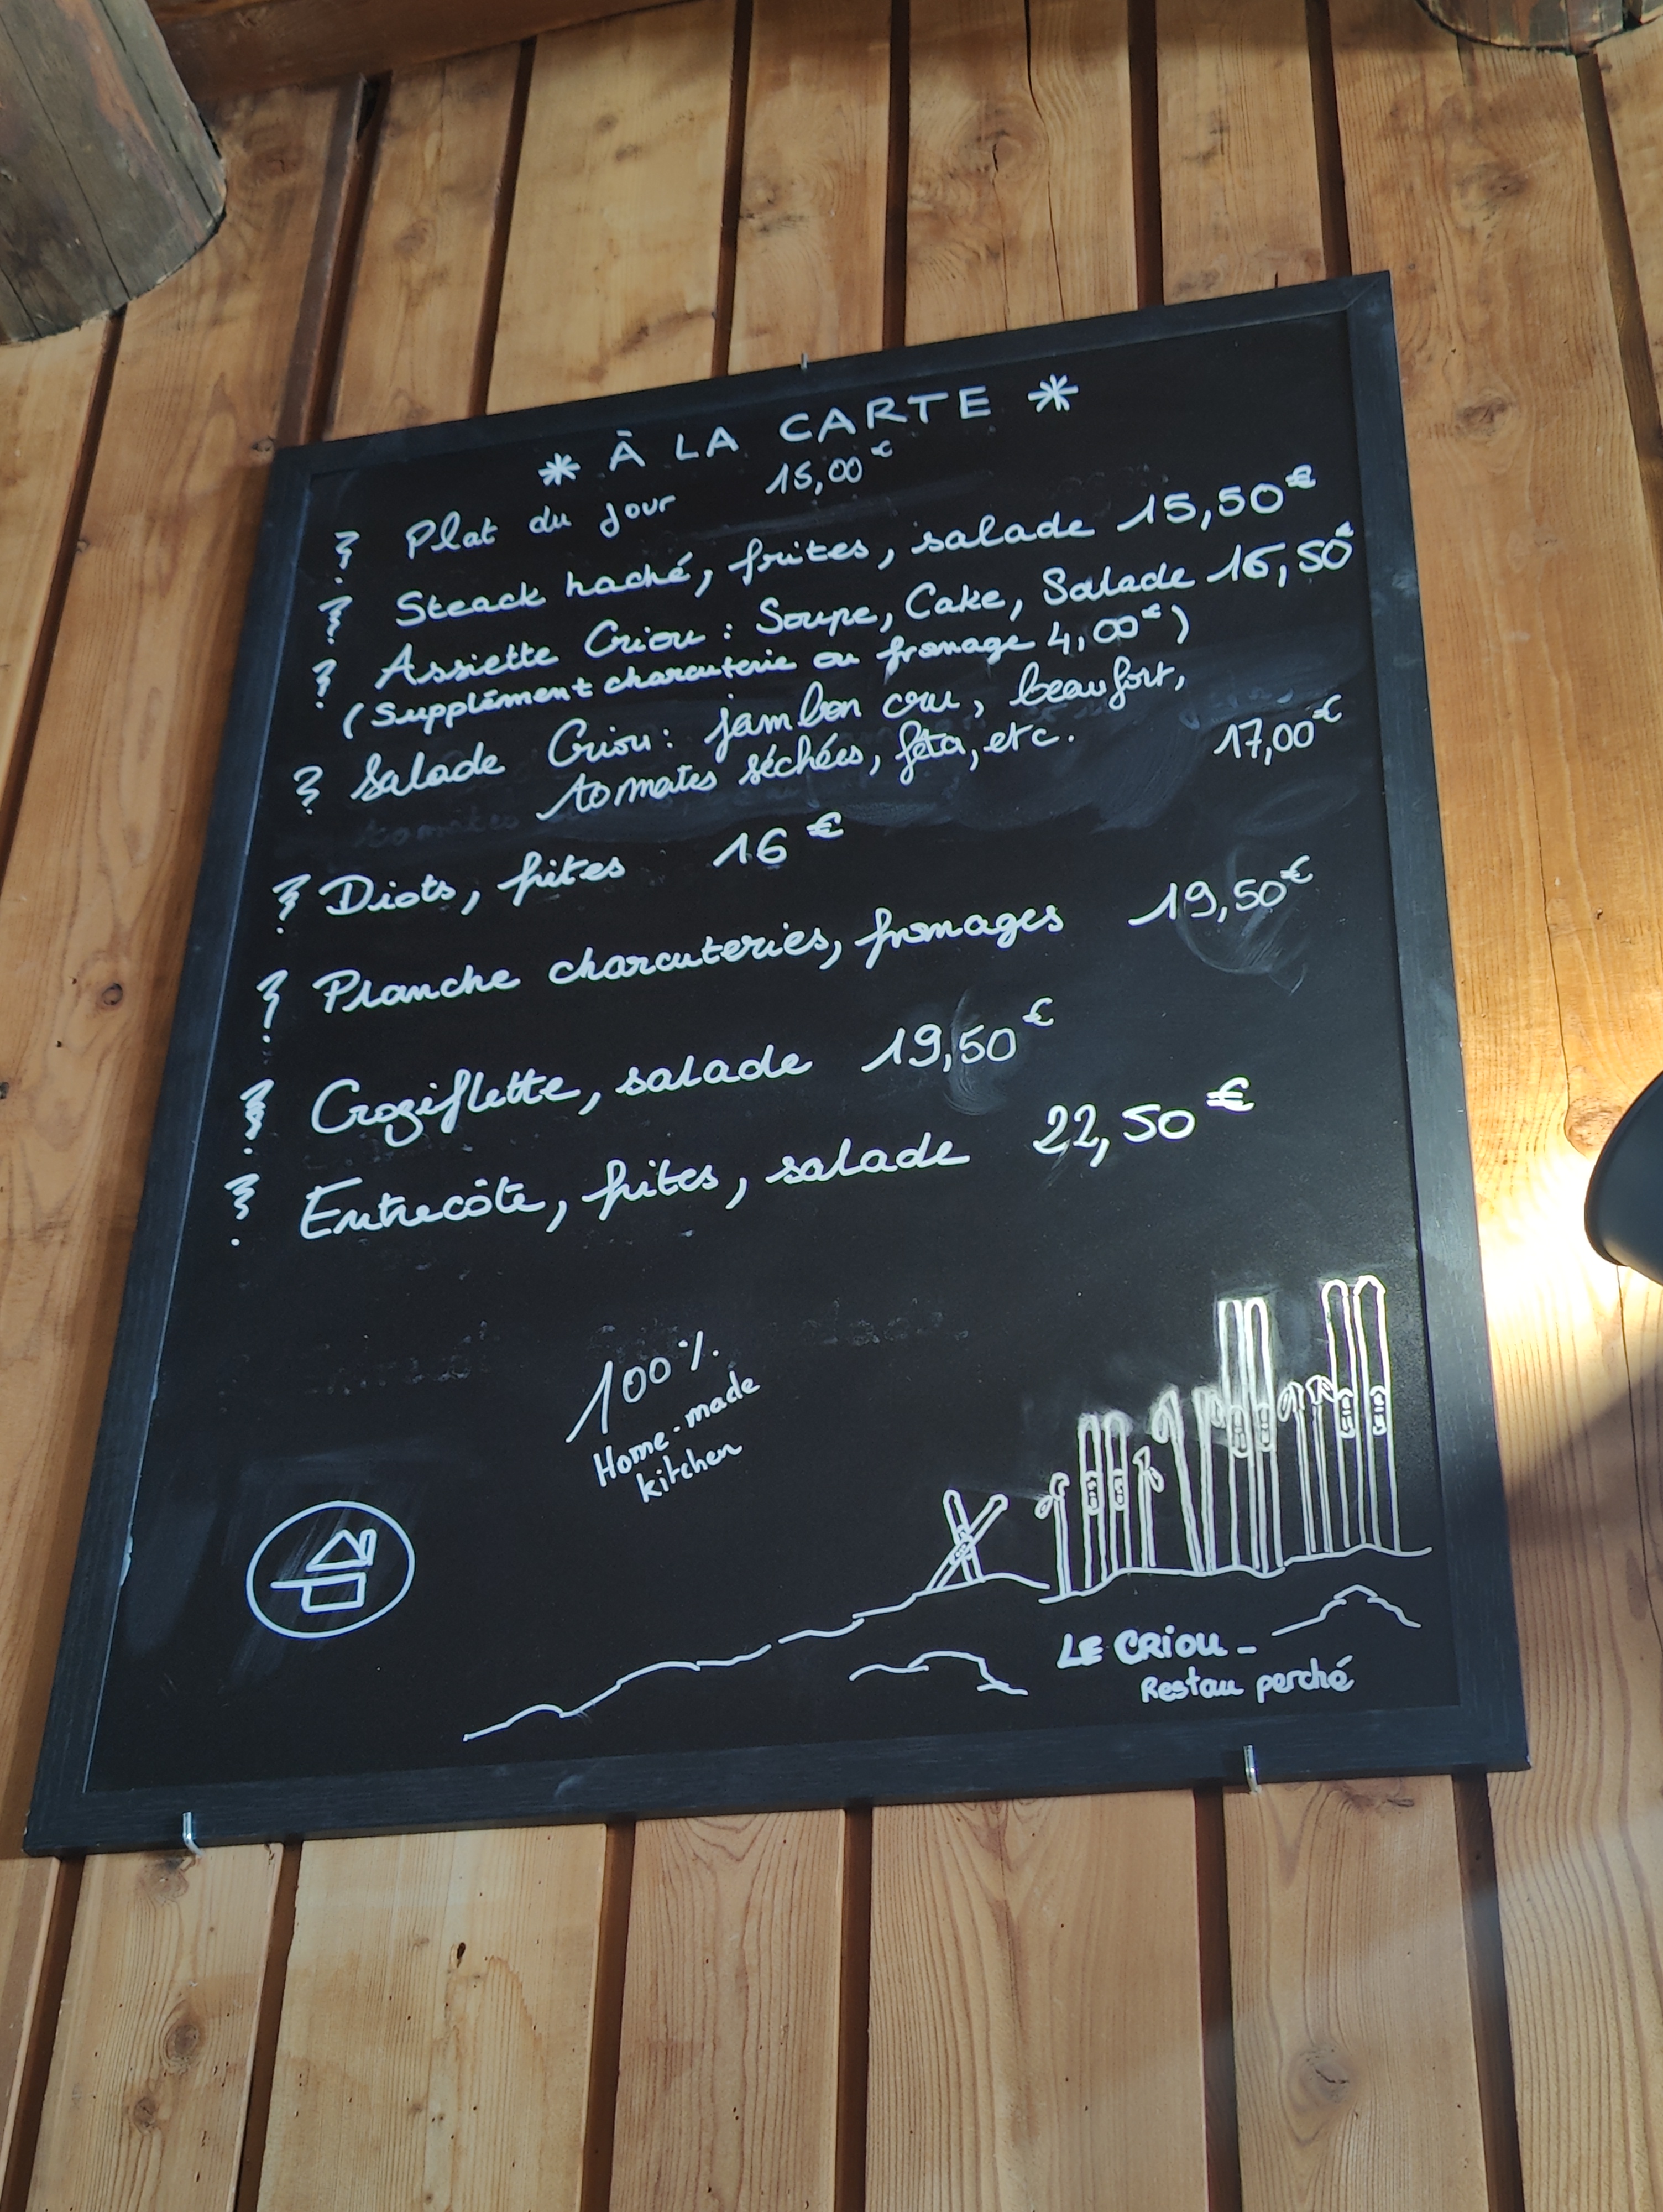 * À LA CARTE *
Plat du jour 15,00€
Steack haché, frites, salade 15,50€
Assiette Criou : Soupe, Cake, Salade 16,50€
(Supplément charcuterie ou fromage 4,00€)
Salade Criou : jambon cru, beaufort,
tomates séchées, féta, etc. 17,00€
Diots, frites 16€
Planche charcuteries, fromages 19,50€
Croziflette, salade 19,50€
Entrecôte, frites, salade 22,50€
100%
Home-made
kitchen
LE CRIOU -
Restau perché